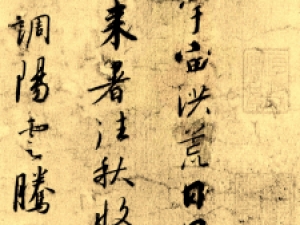 宇宙洪荒日
来暑往秋收
調陽雲騰